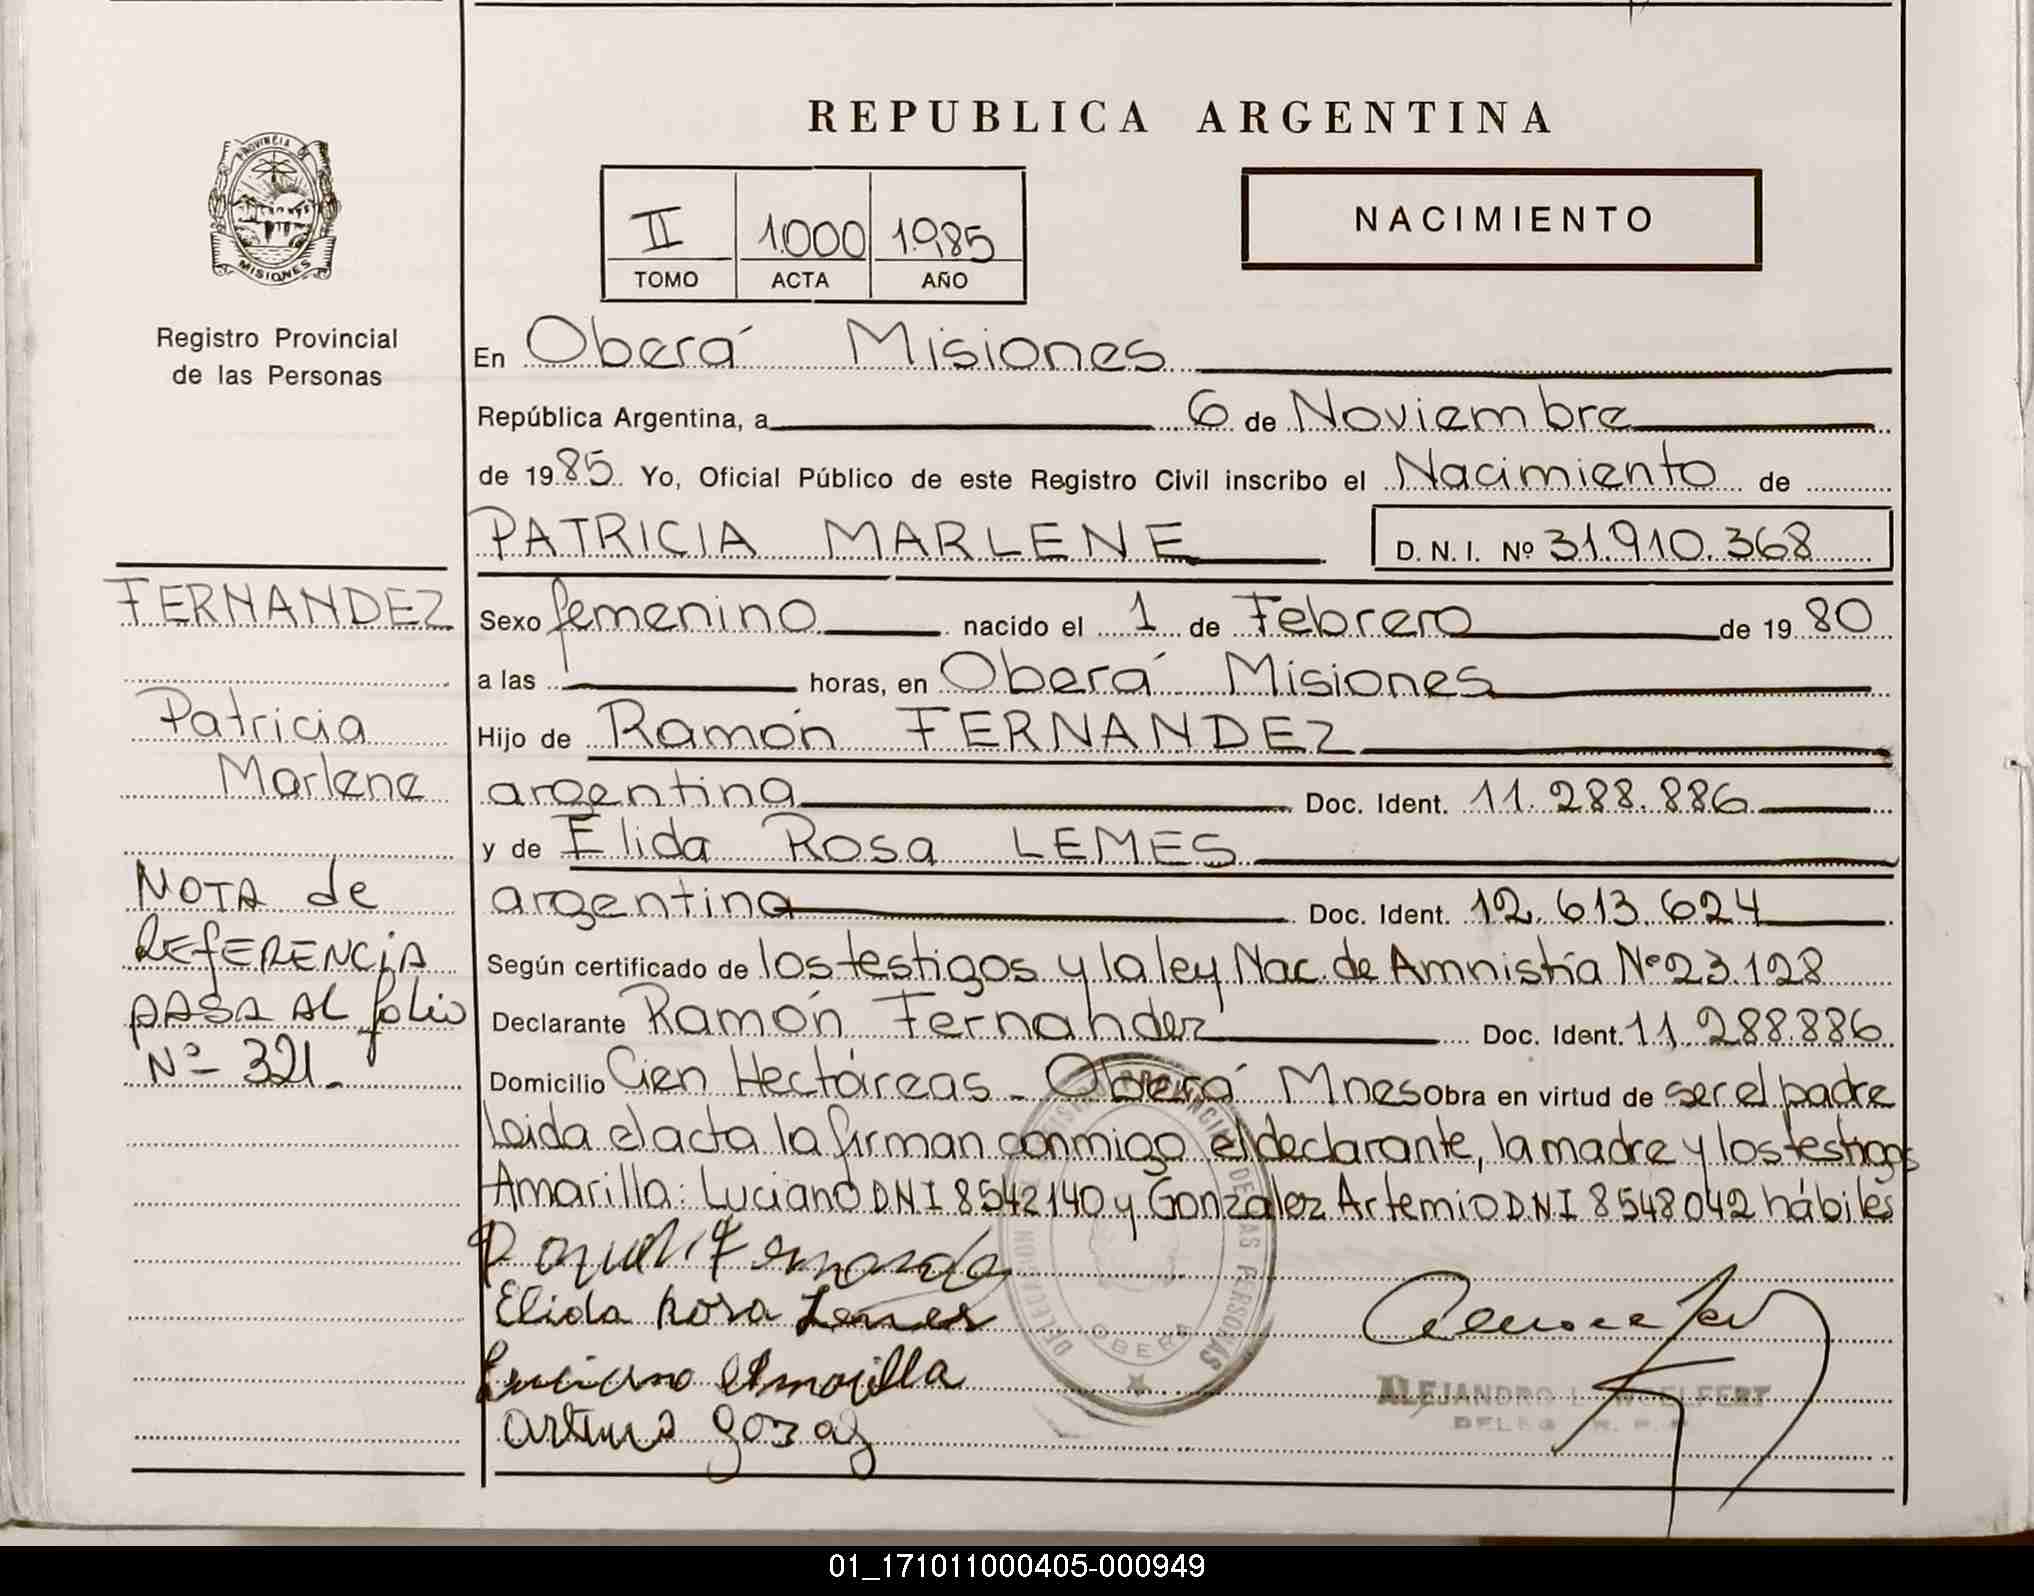 REPUBLICA ARGENTINA
PROVINCIA DE
MISIONES
Registro Provincial
de las Personas
II 1.000 1.985
TOMO ACTA AÑO
NACIMIENTO
En Oberá Misiones
República Argentina, a 6 de Noviembre
de 1985. Yo, Oficial Público de este Registro Civil inscribo el Nacimiento de
PATRICIA MARLENE D. N. I. Nº 31.910.368
Sexo femenino nacido el 1 de Febrero de 1980
a las horas, en Oberá Misiones
Hijo de Ramón FERNANDEZ
argentina Doc. Ident. 11.288.886
y de Elida Rosa LEMES
argentina Doc. Ident. 12.613.624
Según certificado de los testigos y la ley Nac. de Amnistía Nº 23.128
Declarante Ramón Fernandez Doc. Ident. 11.288.886
Domicilio Cien Hectáreas - Oberá Mnes Obra en virtud de ser el padre
Leida el acta la firman conmigo el declarante, la madre y los testigos
Amarilla: Luciano DNI 8542140 y Gonzalez Artemio DNI 8548042 hábiles
Elida Rosa Lemes
Luciano Amarilla
OBERA
ALEJANDRO L. WOELFERT
FERNANDEZ
Patricia
Marlene
NOTA de
REFERENCIA
PASA AL folio
Nº- 321.
01_171011000405-000949